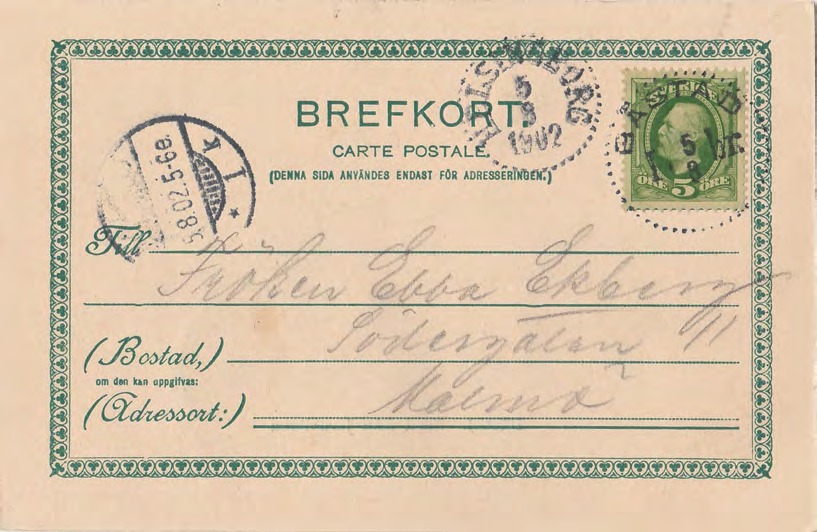 BREFKORT.
CARTE POSTALE.
(DENNA SIDA ANVÄNDES ENDAST FÖR ADRESSERINGEN.)
HELSINGBORG
5
8
1902
SVERIGE
BÅSTAD
5
8
ÖRE 5 ÖRE
5.8.02.5-6e.
K
1
Till
Fröken Ebba Ekberg
Södergatan 11
(Bostad,)
om den kan uppgifvas:
Malmö
(Adressort:)